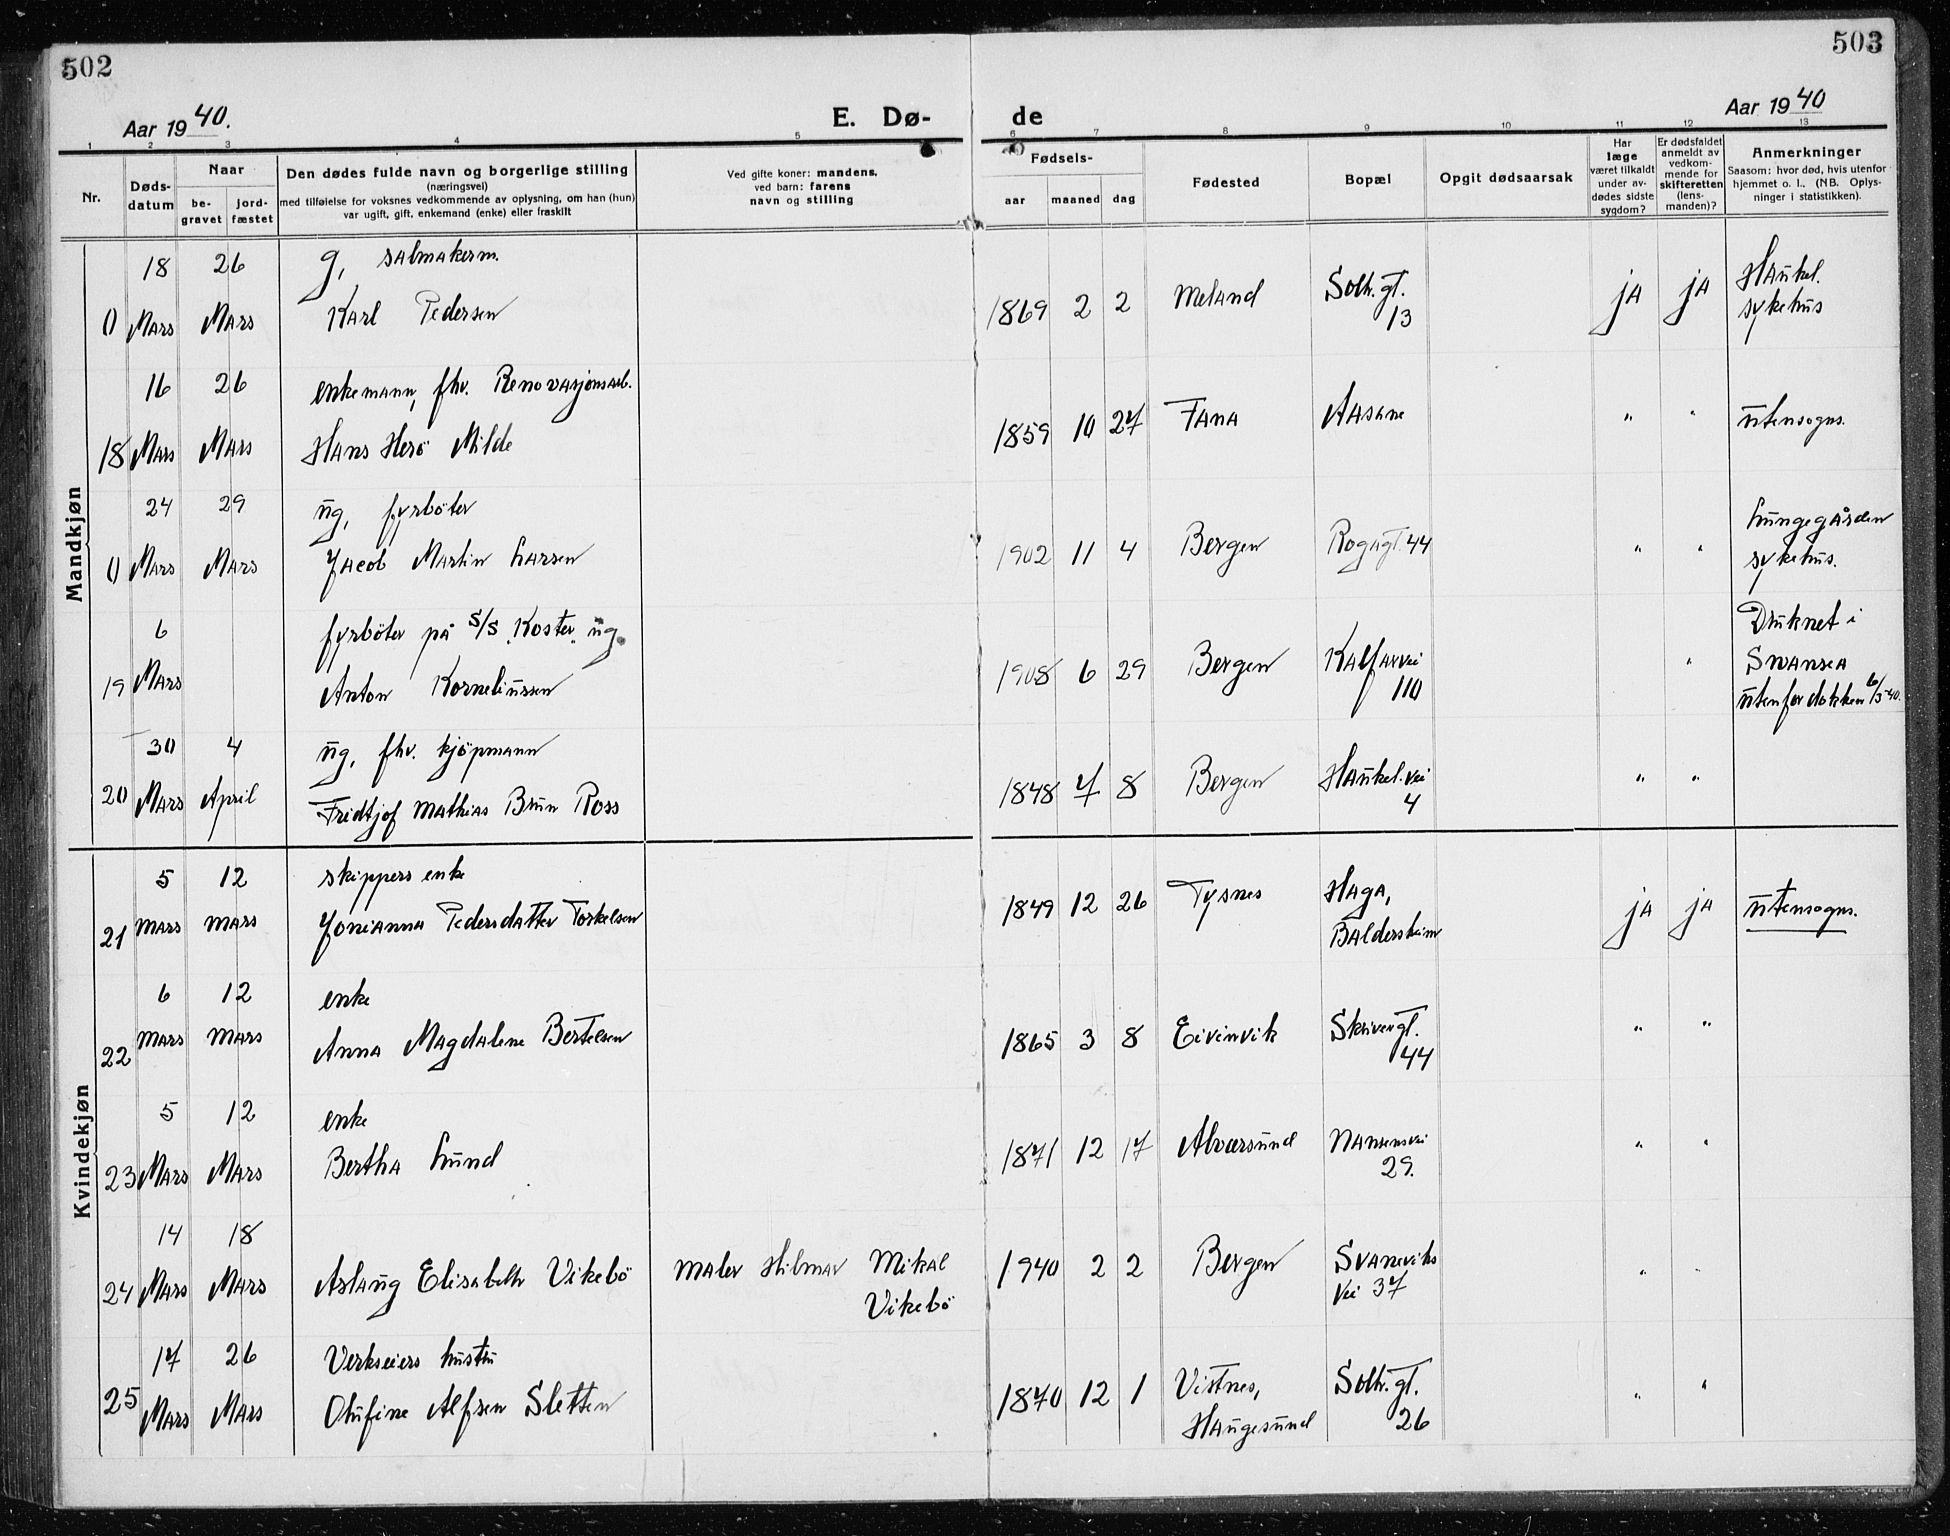 502
503
Aar 1940.
E. Dø-
de
Aar 1940
1 2 3 4 5 6 7 8 9 10 11 12 13
Nr.
Døds-
datum
Naar
be-
gravet
jord-
fæstet
Den dødes fulde navn og borgerlige stilling
(næringsvei)
med tilføielse for voksnes vedkommende av oplysning, om han (hun)
var ugift, gift, enkemand (enke) eller fraskilt
Ved gifte koner: mandens,
ved barn: farens
navn og stilling
Fødsels-
aar maaned dag
Fødested
Bopæl
Opgit dødsaarsak
Har
læge
været tilkaldt
under av-
dødes sidste
sygdom?
Er dødsfaldet
anmeldt av
vedkom-
mende for
skifteretten
(lens-
manden)?
Anmerkninger
Saasom: hvor død, hvis utenfor
hjemmet o. l.. (NB. Oplys-
ninger i statistikken).
Mandkjøn
18 26 g, salmakerm.
0 Mars Mars Karl Pedersen
1869 2 2 Meland Solh.gt.
13
ja ja Haukel.
sykehus
16 26 enkemann, fhv. Renovasjonsarb.
18 Mars Mars Hans Herö Milde
1859 10 27 Fana Aasane " " utensogns.
24 29 ug, fyrböter
0 Mars Mars Jacob Martin Larsen
1902 11 4 Bergen Rogagt. 44 " " Lungegården
sykehus.
6 fyrböter på S/S "Koster" ug.
19 Mars Anton Korneliussen
1908 6 29 Bergen Kalfarvei
110
" Druknet i
Swansea
utenfor dokken 6/3-40.
30 4 ug, fhv. kjöpmann
20 Mars April Fridtjof Mathias Brun Ross
1848 7 8 Bergen Haukel.vei
4
" "
Kvindekjøn
5 12 skippers enke
21 Mars Mars Jonianna Pedersdatter Torkelsen
1849 12 26 Tysnes Haga,
Baldersheim
ja ja utensogns.
6 12 enke
22 Mars Mars Anna Magdalene Bertelsen
1865 3 8 Eivinvik Skivergt.
44
" "
5 12 enke
23 Mars Mars Bertha Lund
1871 12 17 Alværsund Nansensvei
29.
" "
14 18
24 Mars Mars Aslaug Elisabeth Vikebö maler Hilmar Mikal
Vikebö
1940 2 2 Bergen Svaneviks
vei 37
" "
17 26 Verkseiers hustru
25 Mars Mars Olufine Alfsen Sletten
1870 12 1 Vistnes,
Haugesund
Solh.gt.
26
" "